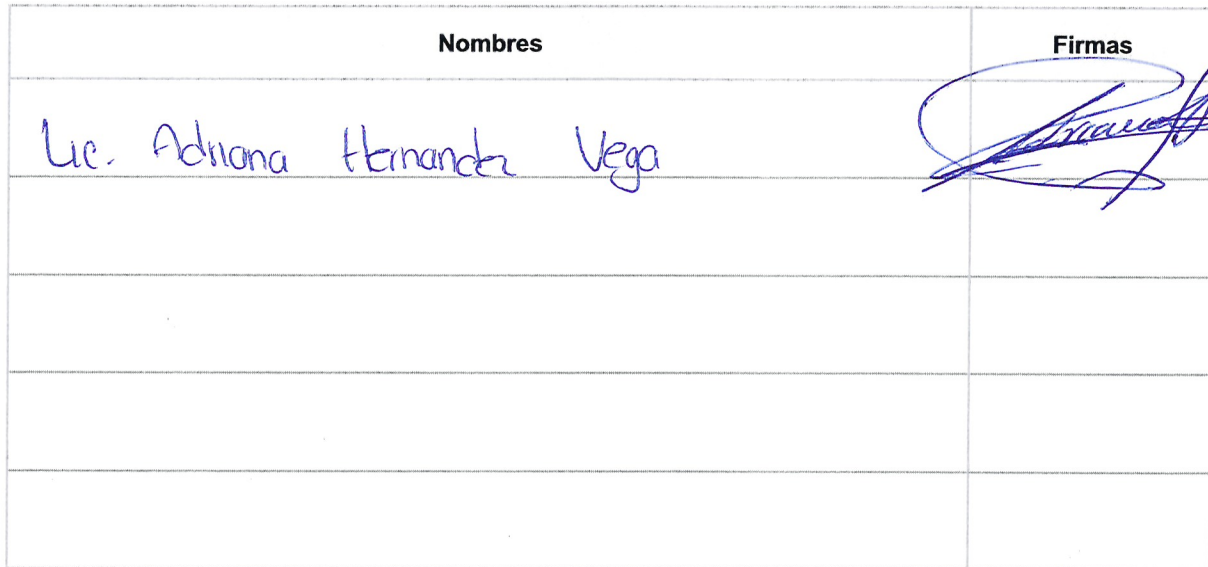 Nombres Firmas
Lic. Adriana Hernandez Vega